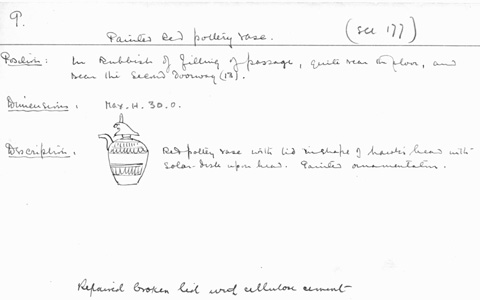 9.
Painted Red pottery vase.
(see 177)
Position: In rubbish of filling of passage, quite near the floor, and
near the second doorway (13).
Dimensions. Max. H. 30.0.
Description. Red pottery vase with lid in shape of hawk's head with
solar-disk upon head. Painted ornamentation.
Repaired broken lid with cellulose cement